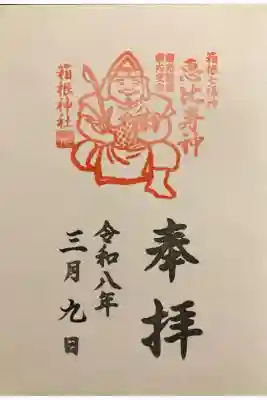 箱根七福神
恵比寿神
箱根神社
奉拝
令和八年
三月九日